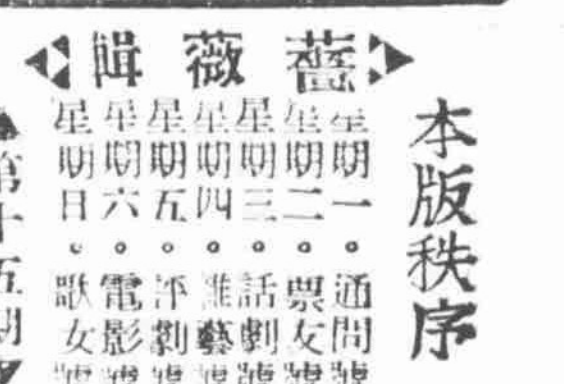 本版秩序
薔薇輯
星期一。通問
星期二。票友
星期三。話劇
星期四。雜藝
星期五。評劇
星期六。電影
星期日。歌女
第十五期